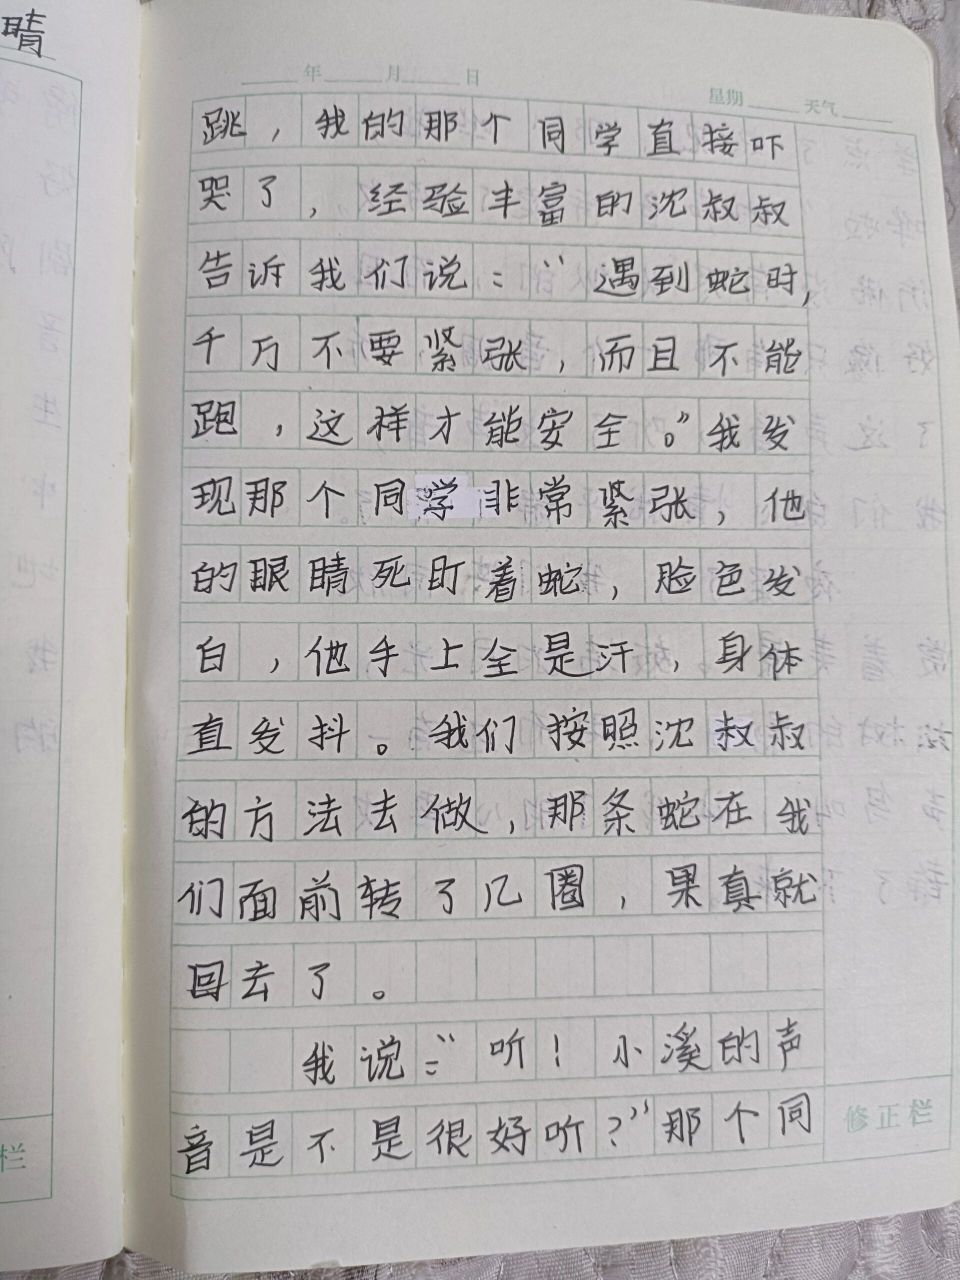 晴
年 月 日
星期 天气
跳，我的那个同学直接吓
哭了，经验丰富的沈叔叔
告诉我们说：“遇到蛇时，
千万不要紧张，而且不能
跑，这样才能安全。”我发
现那个同学非常紧张，他
的眼睛死盯着蛇，脸色发
白，他手上全是汗，身体
直发抖。我们按照沈叔叔
的方法去做，那条蛇在我
们面前转了几圈，果真就
回去了。
我说：“听！小溪的声
音是不是很好听？”那个同
修正栏
栏